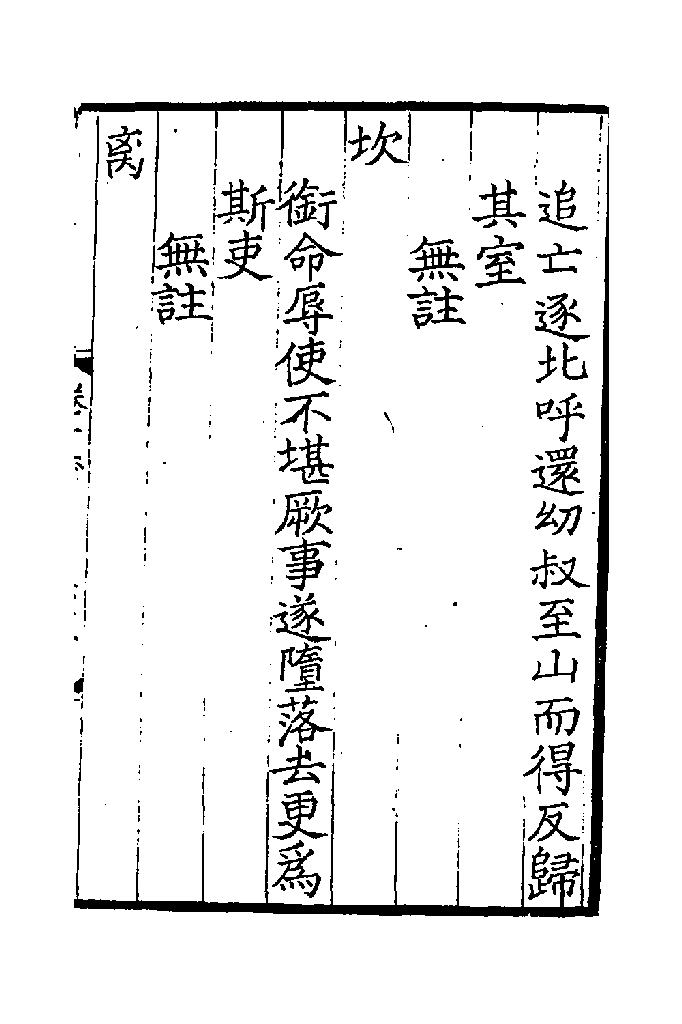 追亡逐北呼還幼叔至山而得反歸
其室
無註
坎
銜命辱使不堪厥事遂墮落去更爲
斯吏
無註
离